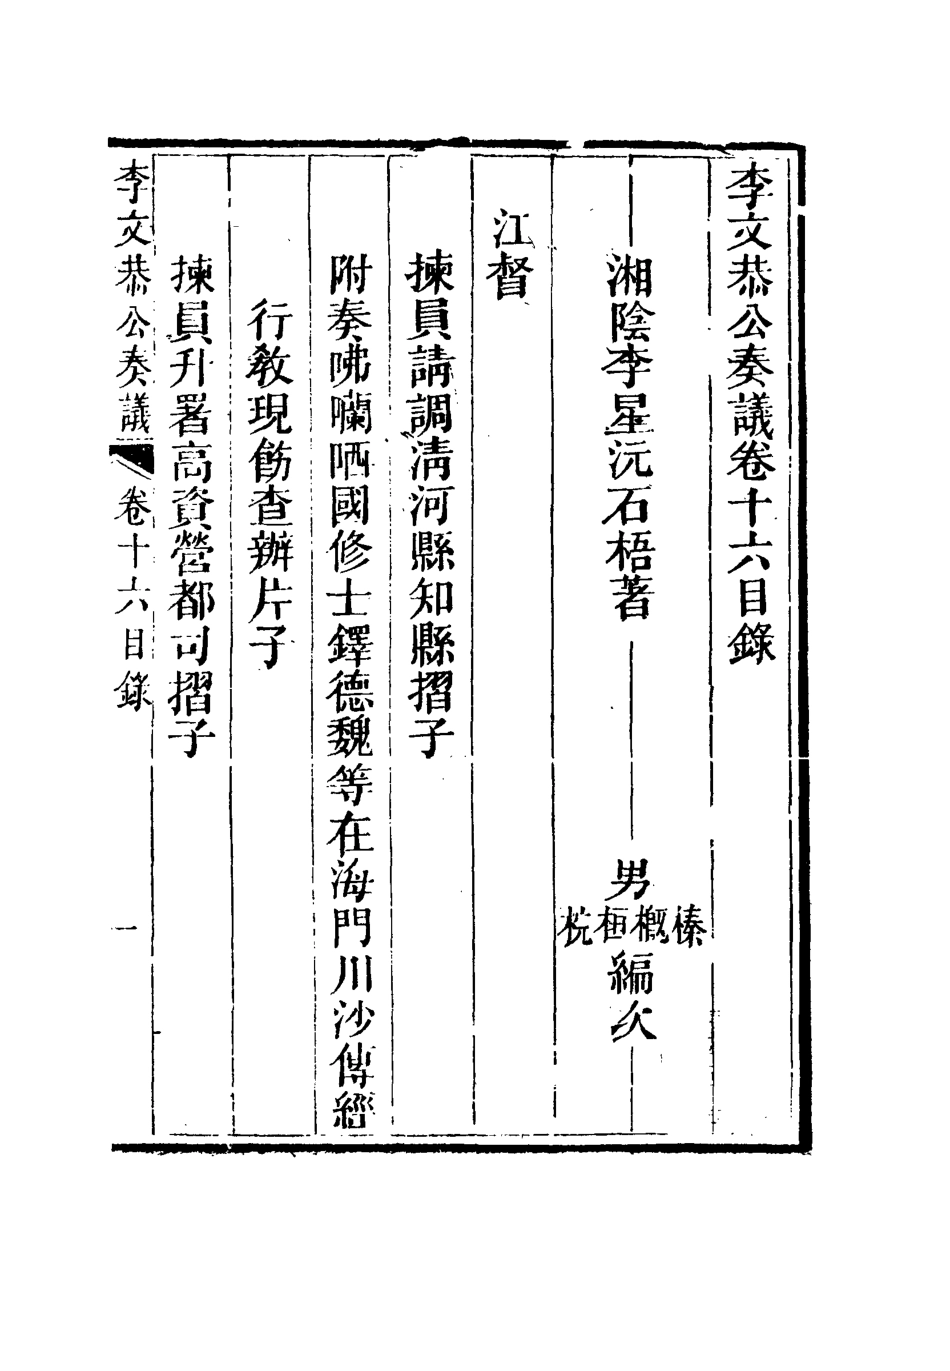 李文恭公奏議卷十六目錄
湘陰李星沅石梧著　男榛槪桓杬編次
江督
揀員請調淸河縣知縣摺子
附奏咈囒哂國修士鐸德魏等在海門川沙傳經
行敎現飭查辦片子
揀員升署高資營都司摺子
李文恭公奏議　卷十六目錄　一